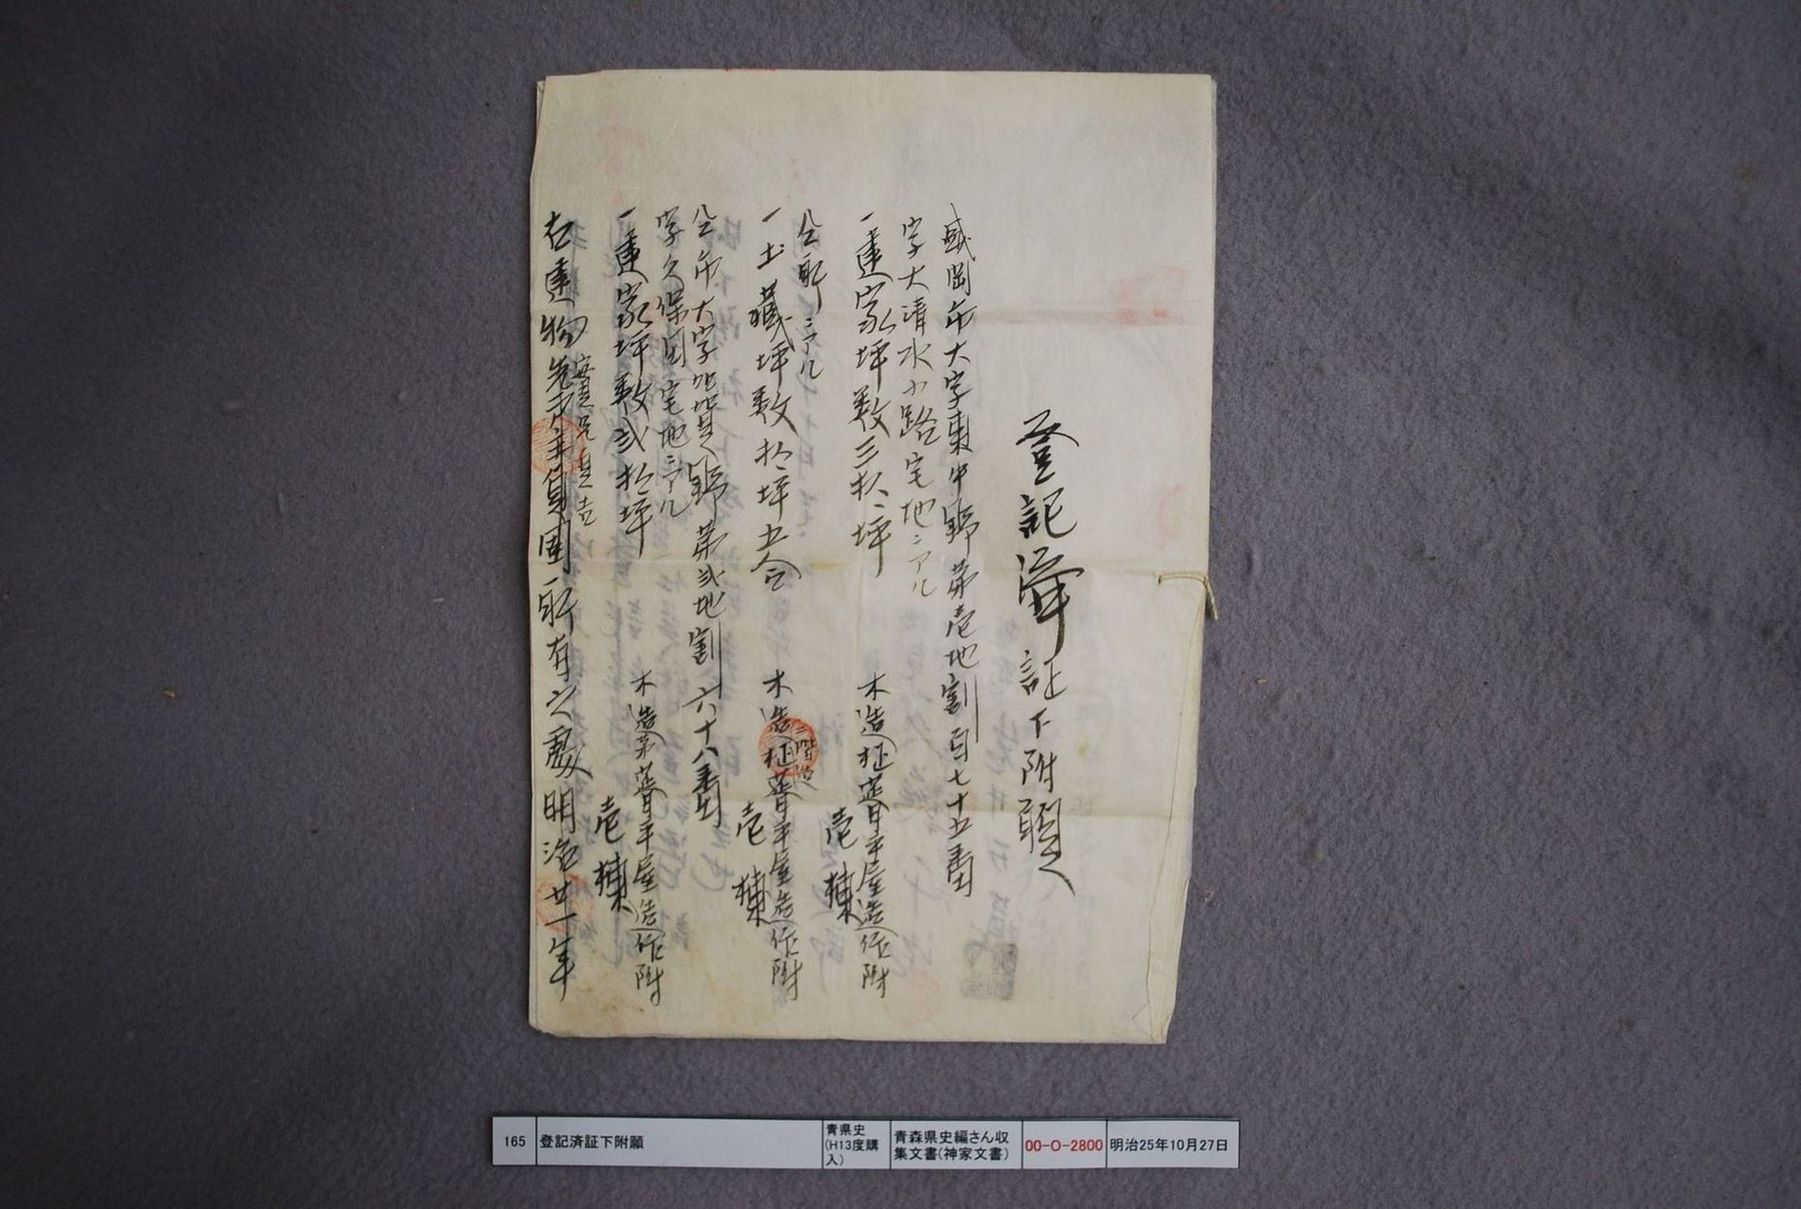 登記済証下附願
盛岡市大字東中野第壱地割百七十五番
字大清水小路宅地ニアル
一建家坪数三拾坪
木造柾葺平屋造作附
壱棟
仝所ニアル
一土蔵坪数拾坪五合
木造柾葺平屋造作附
二階造
壱棟
仝市大字加賀野第弐地割六十八番
字久保田宅地ニアル
一建家坪数弐拾坪
木造茅葺平屋造作附
壱棟
右建物先戸主
所有之処明治廿一年
165
登記済証下附願
青県史
(H13度購
入)
青森県史編さん収
集文書(神家文書)
00-O-2800
明治25年10月27日